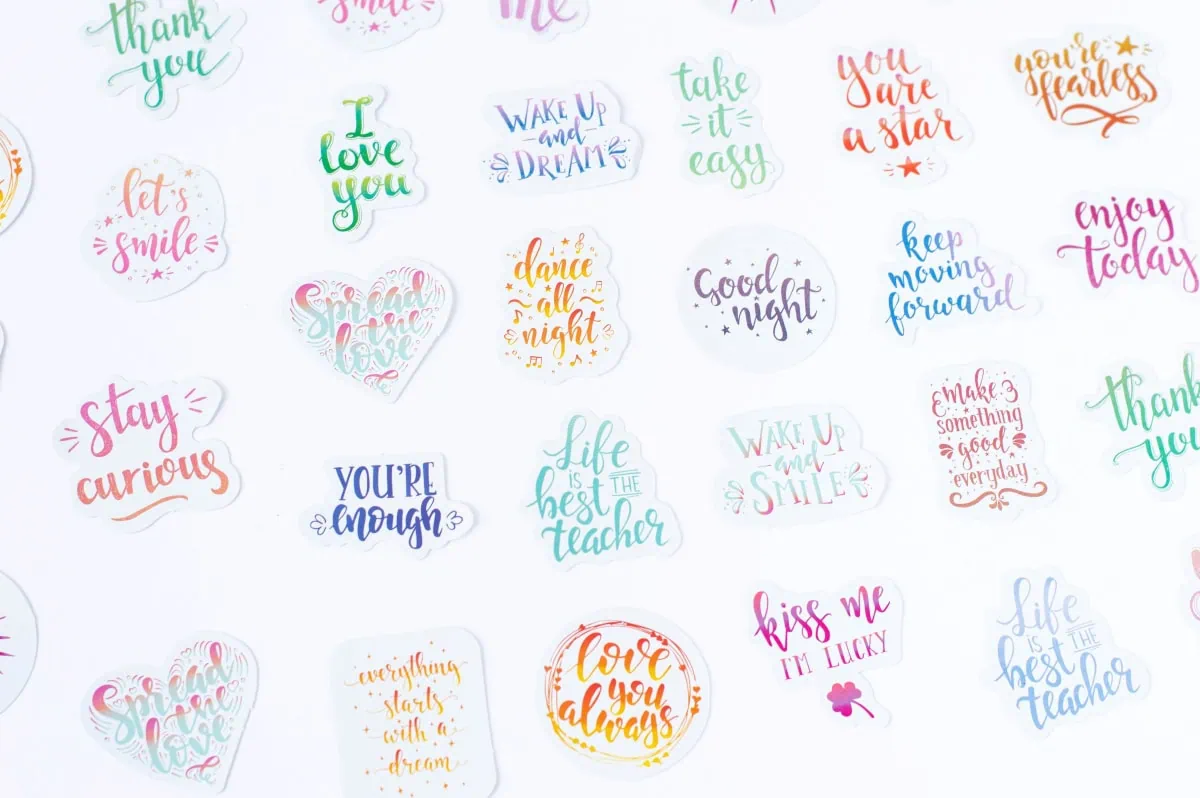 thank
you
smile
me
I
love
you
WAKE UP
and
DREAM
take
it
easy
you
are
a star
you're
fearless
let's
smile
Spread
the
love
dance
all
night
Good
night
keep
moving
forward
enjoy
today
stay
curious
YOU'RE
enough
Life
IS
best THE
teacher
WAKE UP
and
SMILE
make
something
good
everyday
thank
you
Spread
the
love
everything
starts
with a
dream
love
you
always
kiss me
I'M LUCKY
Life
IS
best THE
teacher